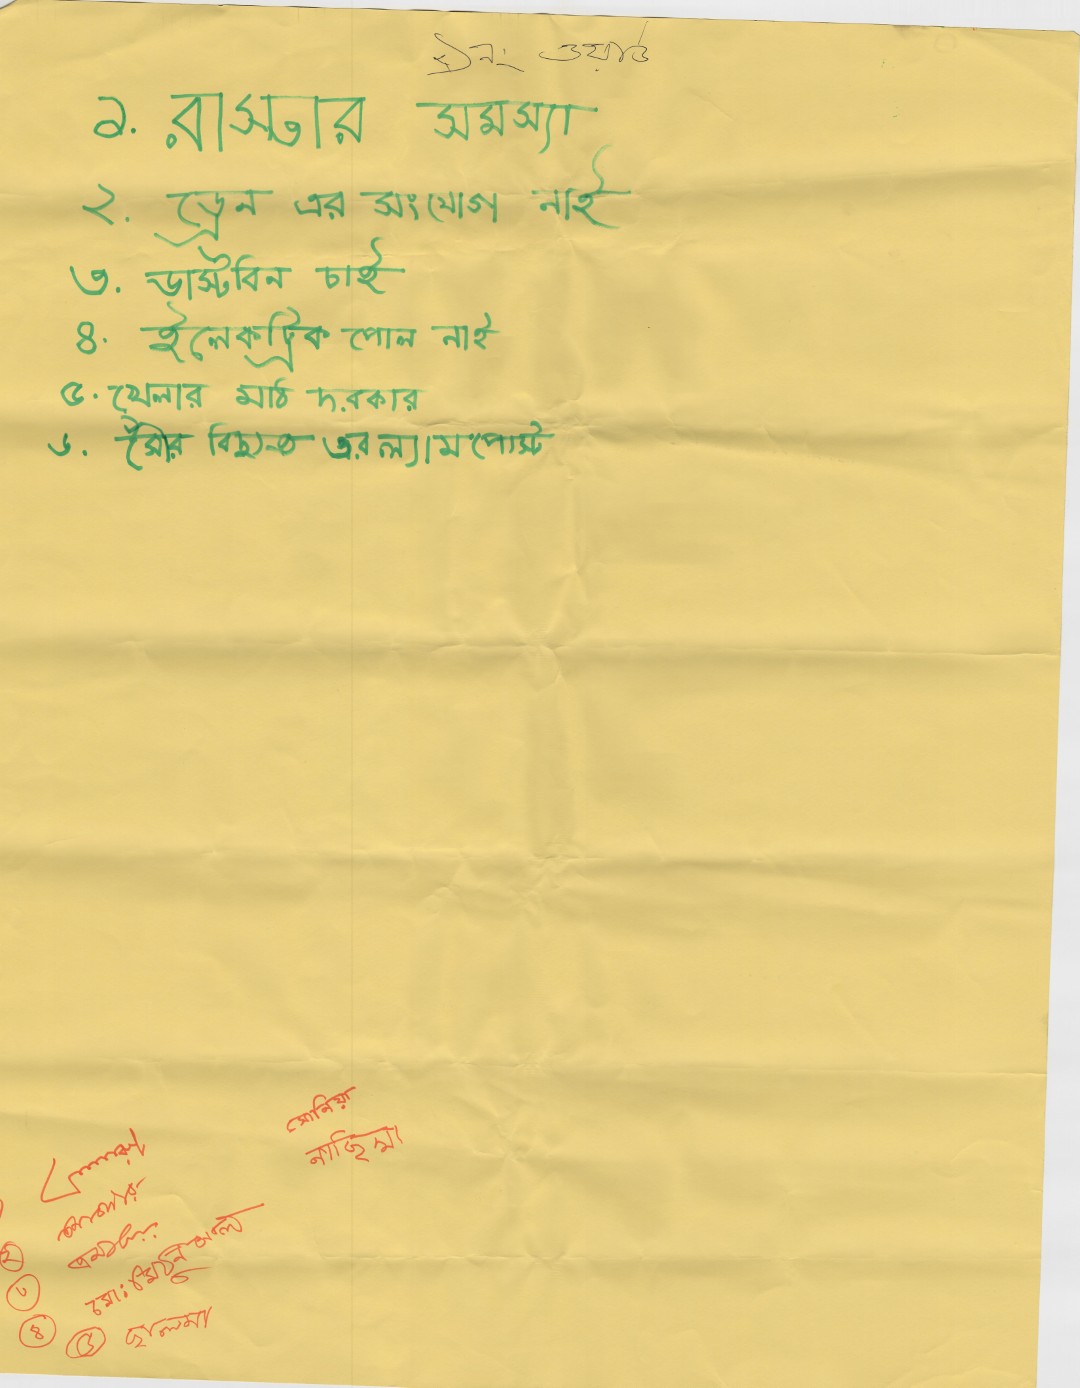 নং ওয়ার্ড
১. রাস্টার সমস্যা
২. ড্রেন এর সংযোগ নাই
৩. ডাস্টবিন চাই
৪. ইলেকট্রিক পোল নাই
৫. খেলার মাঠ দরকার
৬. সৌর বিদ্যুত এর ল্যাম পোস্ট
সোনিয়া
নাজিমা
২
৩
মো: মিঠুন
৪ ৫ ছালমা